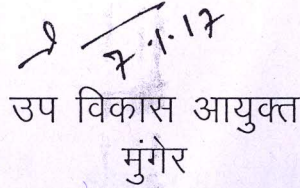 7.1.17
उप विकास आयुक्त
मुंगेर